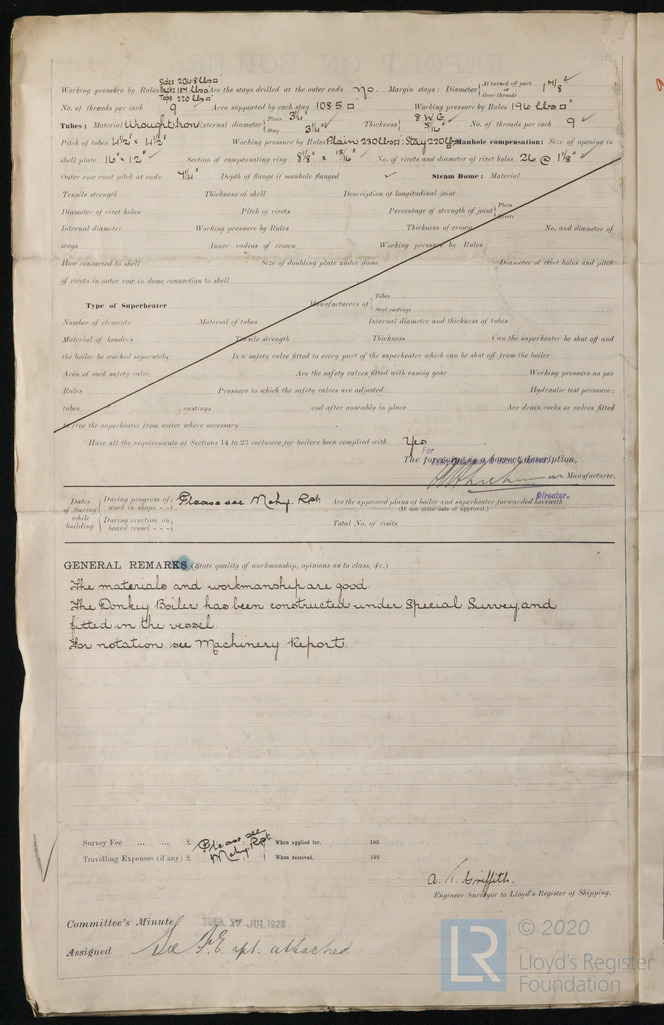 Sides 204.8 lbs□
Working pressure by Rules Backs 184 lbs□ Are the stays drilled at the outer ends No. Margin stays: Diameter { At turned off part, or Over threads 1 7/8 ✓
Tops 220 lbs□
No. of threads per inch 9 ✓ Area supported by each stay 108.5 □ Working pressure by Rules 196 lbs□
Tubes: Material Wrought Iron External diameter { Plain 3¼" Stay 3¼" ✓ Thickness { 8 W.G. 5/16" ✓ No. of threads per inch 9 ✓
Pitch of tubes 4½" × 4½" Working pressure by Rules Plain 230 lbs□: Stay 220 lbs Manhole compensation: Size of opening in
shell plate 16" × 12" ✓ Section of compensating ring 8⅞" × 15/16" ✓ No. of rivets and diameter of rivet holes 26 @ 1⅛" ✓
Outer row rivet pitch at ends 7¼" Depth of flange if manhole flanged ✓ Steam Dome: Material
Tensile strength Thickness of shell Description of longitudinal joint
Diameter of rivet holes Pitch of rivets Percentage of strength of joint { Plate Rivets
Internal diameter Working pressure by Rules Thickness of crown No. and diameter of
stays Inner radius of crown Working pressure by Rules
How connected to shell Size of doubling plate under dome Diameter of rivet holes and pitch
of rivets in outer row in dome connection to shell
Type of Superheater Manufacturers of { Tubes Steel castings
Number of elements Material of tubes Internal diameter and thickness of tubes
Material of headers Tensile strength Thickness Can the superheater be shut off and
the boiler be worked separately Is a safety valve fitted to every part of the superheater which can be shut off from the boiler
Area of each safety valve Are the safety valves fitted with easing gear Working pressure as per
Rules Pressure to which the safety valves are adjusted Hydraulic test pressure:
tubes castings and after assembly in place Are drain cocks or valves fitted
to free the superheater from water where necessary
Have all the requirements of Sections 14 to 23 inclusive for boilers been complied with Yes
For
The foregoing is a correct description,
Manufacturer.
Director.
Dates of Survey while building { During progress of work in shops - - Please see Mchy. Rpt. Are the approved plans of boiler and superheater forwarded herewith (If not state date of approval.)
During erection on board vessel - - - Total No. of visits
GENERAL REMARKS (State quality of workmanship, opinions as to class, &c.)
The materials and workmanship are good.
The Donkey Boiler has been constructed under Special Survey, and
fitted in the vessel.
For notation see Machinery Report.
Survey Fee ... ... £ Please see When applied for, 192
Travelling Expenses (if any) £ Mchy. Rpt. When received, 192
A. K. Griffith.
Engineer Surveyor to Lloyd's Register of Shipping.
Committee's Minute TUES. 17 JUL 1928
Assigned See F.E. rpt. attached
LR © 2020
Lloyd's Register
Foundation